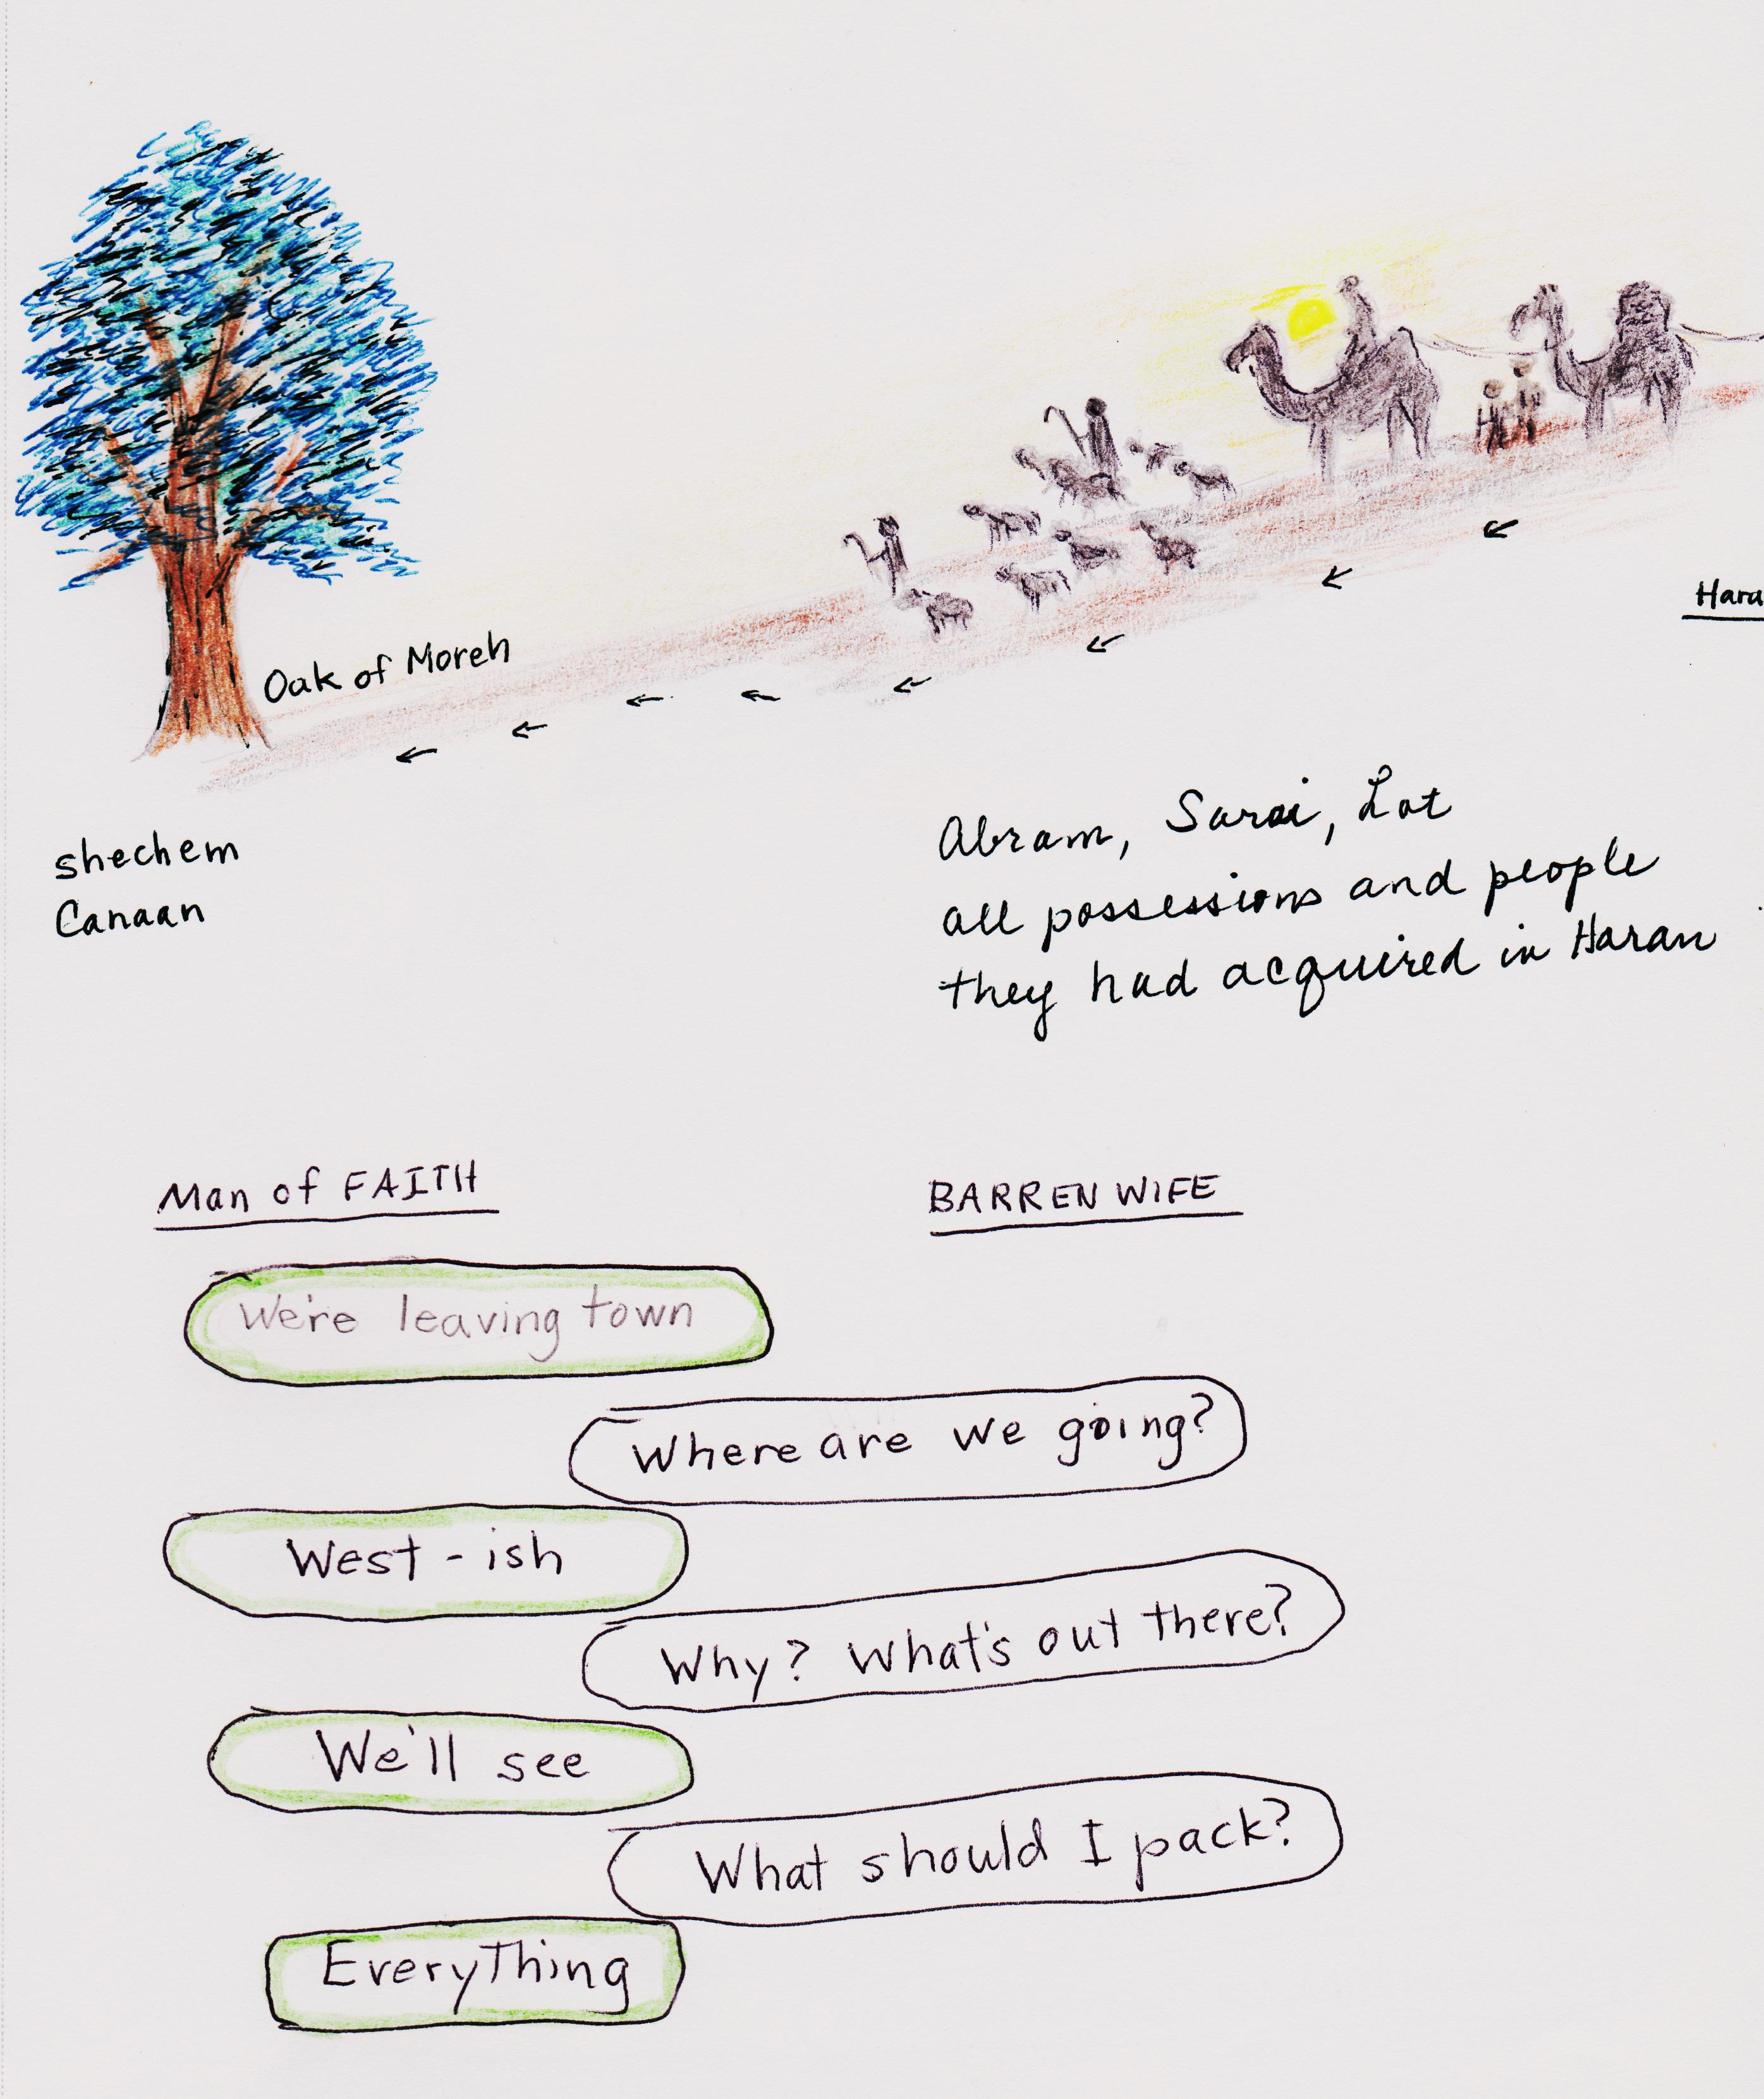 Hara
Oak of Moreh
shechem
Canaan
Abram, Sarai, Lot
all possessions and people
they had acquired in Haran
Man of FAITH
BARREN WIFE
We're leaving town
Where are we going?
West-ish
Why? What's out there?
We'll see
What should I pack?
EveryThing